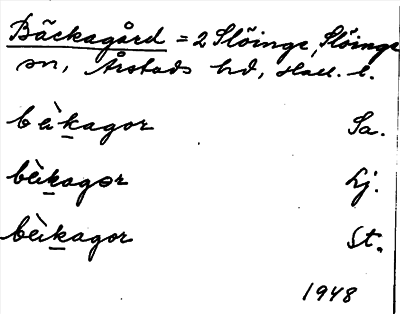 Bäckagård = 2 Slöinge, Slöinge
sn, Årstads hd, Hall. l.
bèikagor Sa.
bèikagər Lj.
bèikagor St.
1948